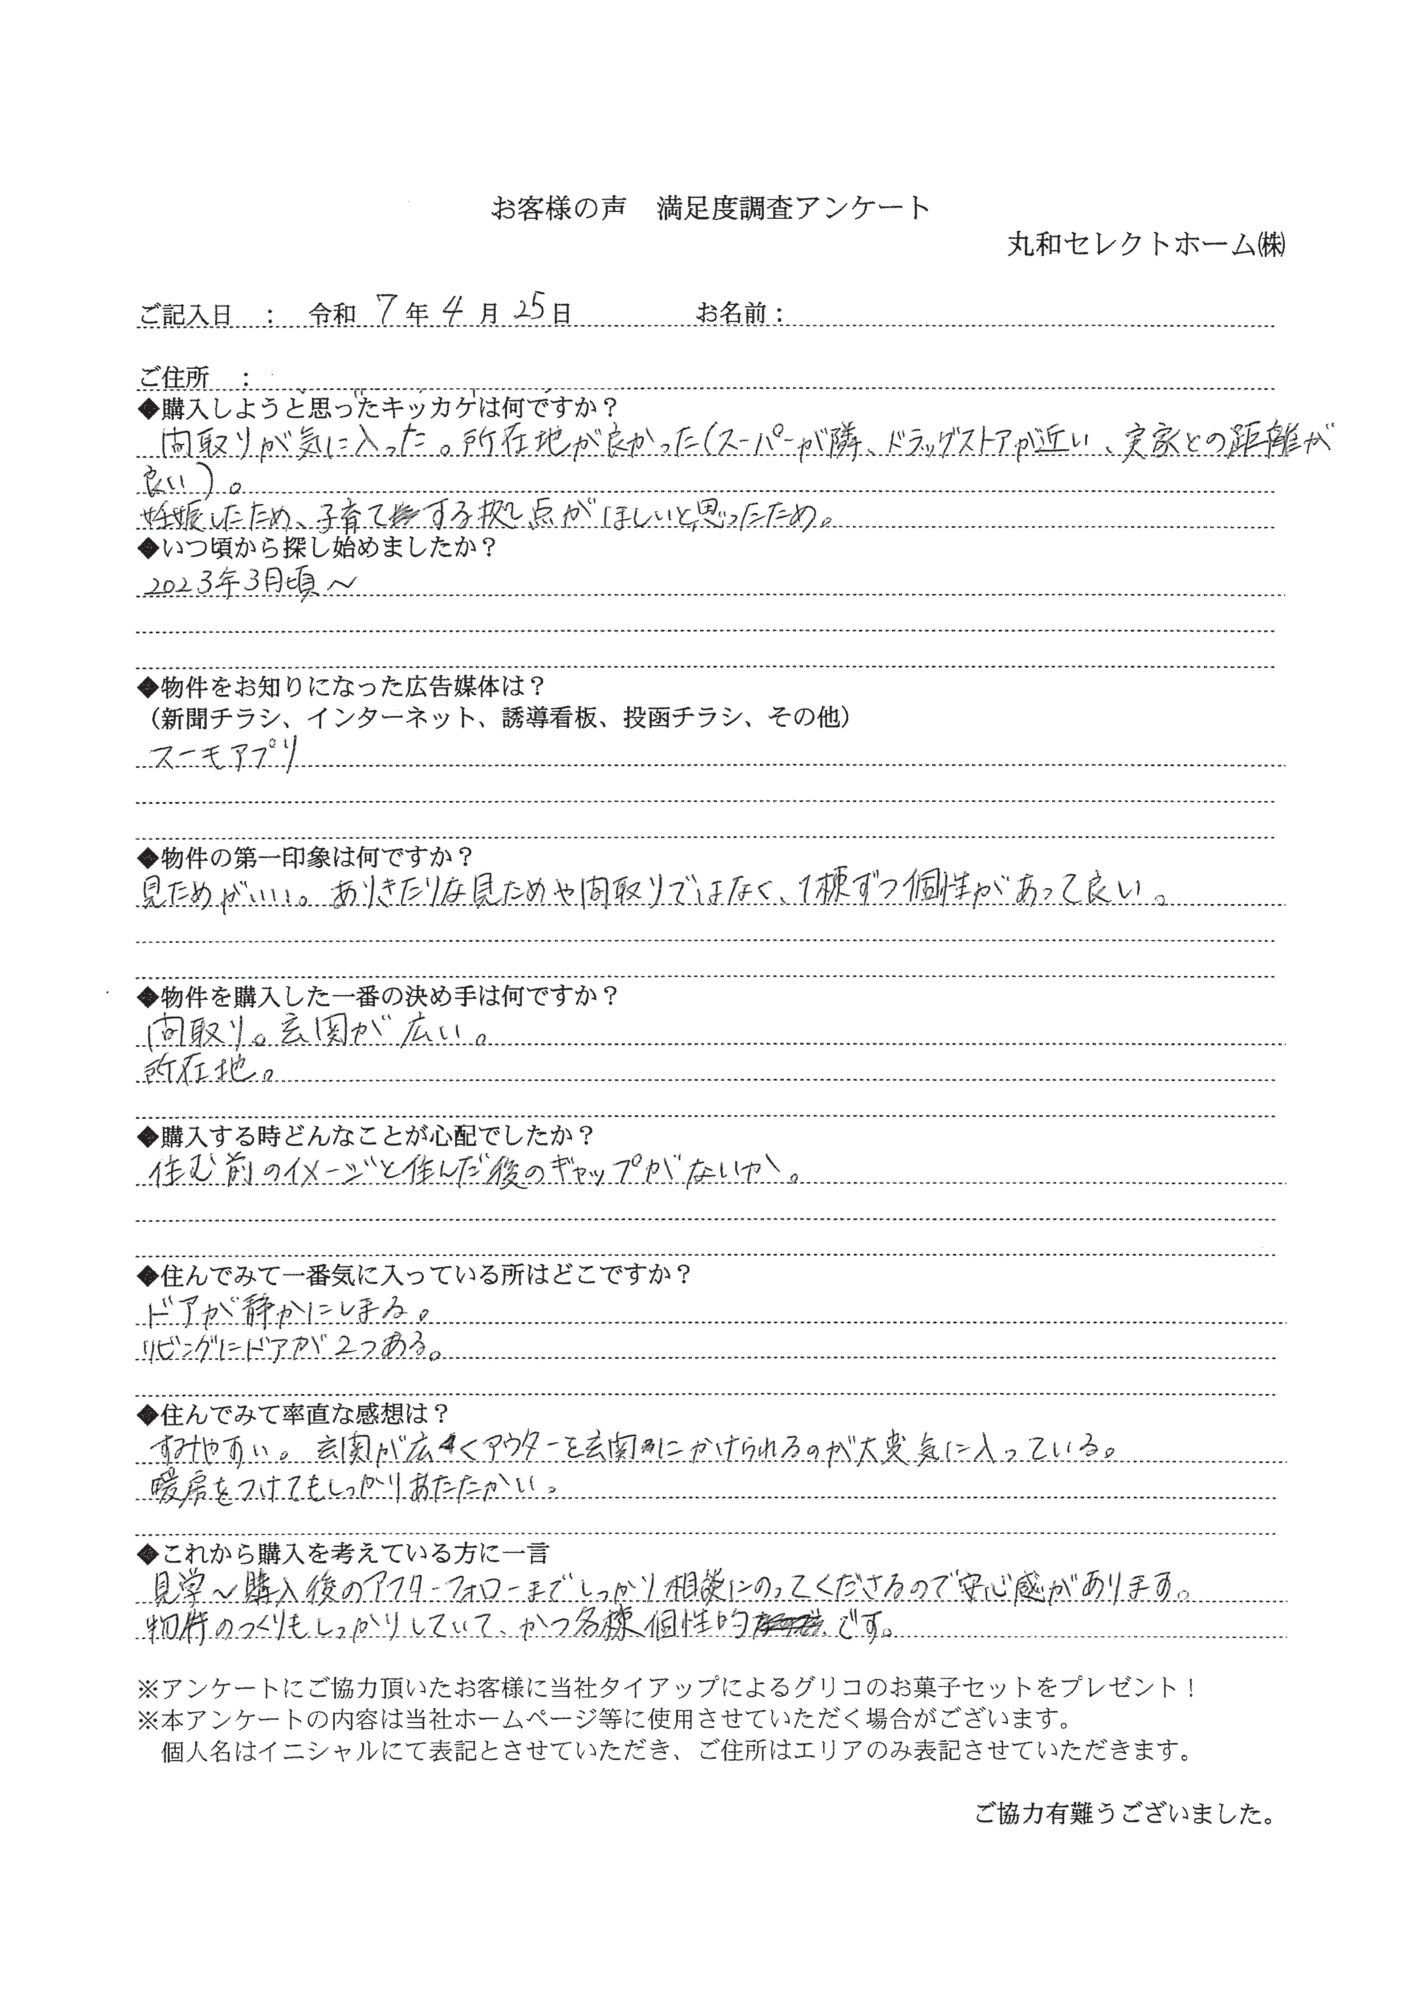 お客様の声　満足度調査アンケート
丸和セレクトホーム㈱
ご記入日　：　令和 7 年 4 月 25 日　　お名前：
ご住所　：
◆購入しようと思ったキッカケは何ですか？
間取りが気に入った。所在地が良かった(スーパーが隣、ドラッグストアが近い、実家との距離が
良い)。
妊娠したため、子育てする拠点がほしいと思ったため。
◆いつ頃から探し始めましたか？
2023年3月頃～
◆物件をお知りになった広告媒体は？
（新聞チラシ、インターネット、誘導看板、投函チラシ、その他）
スーモアプリ
◆物件の第一印象は何ですか？
見ためがいい。ありきたりな見ためや間取りではなく、1棟ずつ個性があって良い。
◆物件を購入した一番の決め手は何ですか？
間取り。玄関が広い。
所在地。
◆購入する時どんなことが心配でしたか？
住む前のイメージと住んだ後のギャップがないか。
◆住んでみて一番気に入っている所はどこですか？
ドアが静かにしまる。
リビングにドアが2つある。
◆住んでみて率直な感想は？
すみやすい。玄関が広くアウターを玄関にかけられるのが大変気に入っている。
暖房をつけてもしっかりあたたかい。
◆これから購入を考えている方に一言
見学～購入後のアフターフォローまでしっかり相談にのってくださるので安心感があります。
物件のつくりもしっかりしていて、かつ各棟個性的です。
※アンケートにご協力頂いたお客様に当社タイアップによるグリコのお菓子セットをプレゼント！
※本アンケートの内容は当社ホームページ等に使用させていただく場合がございます。
個人名はイニシャルにて表記とさせていただき、ご住所はエリアのみ表記させていただきます。
ご協力有難うございました。